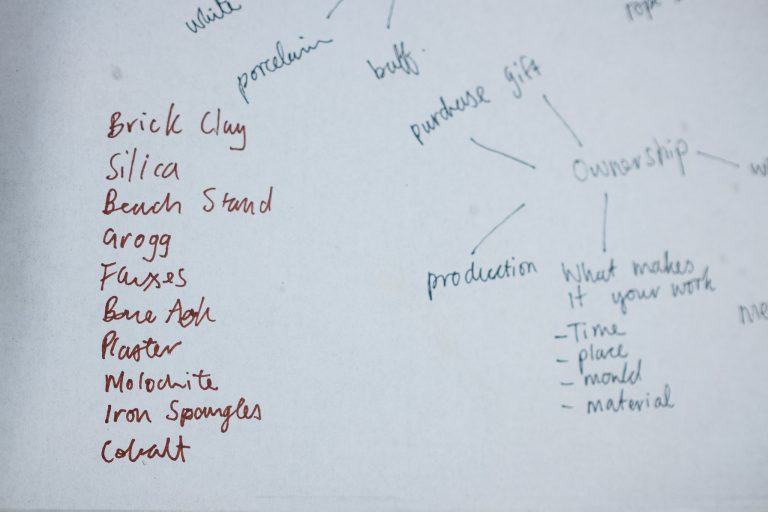 white
porcelain
buff.
purchase
gift
Ownership
production
What makes
it your work
- Time
- place
- mould
- material
Brick Clay
Silica
Beach Stand
Grogg
Fluxes
Bone Ash
Plaster
Molochite
Iron Spangles
Cobalt